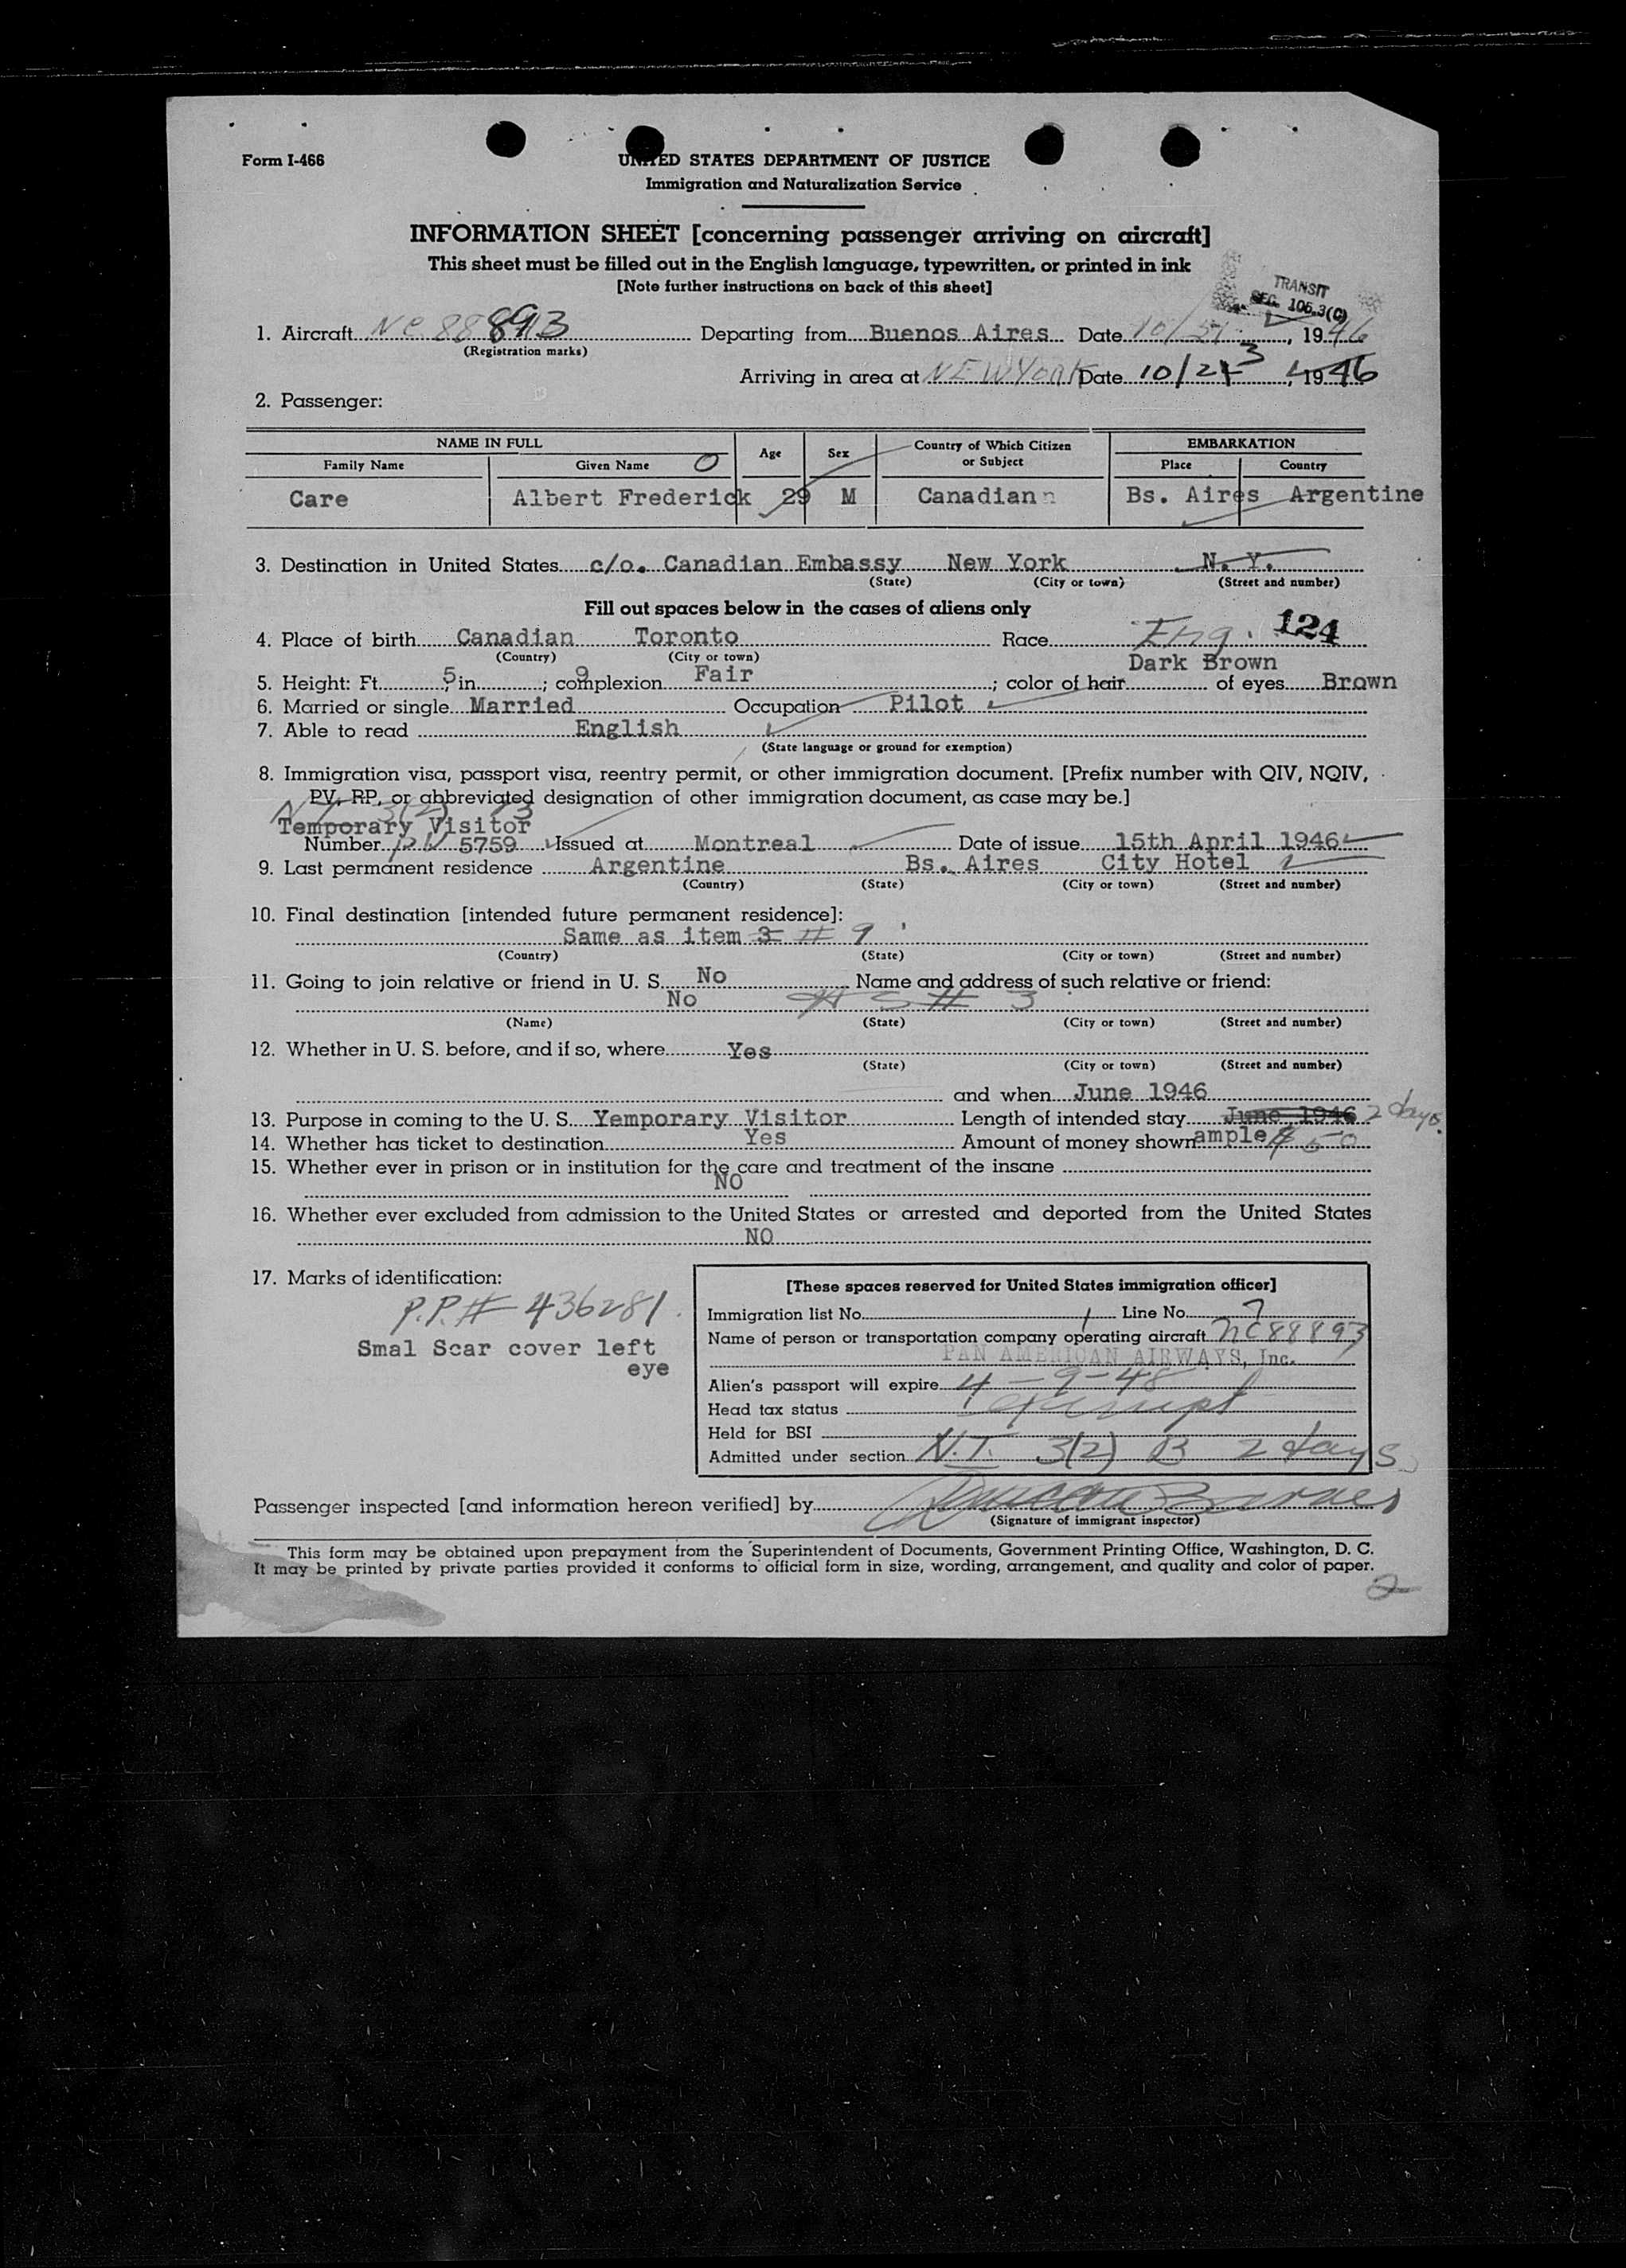 Form I-466
UNITED STATES DEPARTMENT OF JUSTICE
Immigration and Naturalization Service
INFORMATION SHEET [concerning passenger arriving on aircraft]
This sheet must be filled out in the English language, typewritten, or printed in ink
[Note further instructions on back of this sheet]
TRANSIT
SEC. 105.3(C)
1. Aircraft NC 88893 Departing from Buenos Aires Date 10/ , 1946
(Registration marks)
Arriving in area at NEW York Date 10/23 , 1946
2. Passenger:
NAME IN FULL Age Sex Country of Which Citizen or Subject EMBARKATION
Family Name Given Name O Place Country
Care Albert Frederick 29 M Canadian n Bs. Aires Argentine
3. Destination in United States c/o. Canadian Embassy New York N. Y.
(State) (City or town) (Street and number)
Fill out spaces below in the cases of aliens only
124
4. Place of birth Canadian Toronto Race Eng.
(Country) (City or town)
Dark Brown
5. Height: Ft. 5, in. 9; complexion Fair; color of hair of eyes Brown
6. Married or single Married Occupation Pilot
7. Able to read English
(State language or ground for exemption)
8. Immigration visa, passport visa, reentry permit, or other immigration document. [Prefix number with QIV, NQIV,
PV, RP, or abbreviated designation of other immigration document, as case may be.]
N.T. 3(2) B
Temporary Visitor
Number PV 5759 Issued at Montreal Date of issue 15th April 1946
9. Last permanent residence Argentine Bs. Aires City Hotel
(Country) (State) (City or town) (Street and number)
10. Final destination [intended future permanent residence]:
Same as item 3 # 9
(Country) (State) (City or town) (Street and number)
11. Going to join relative or friend in U. S. No Name and address of such relative or friend:
No # 3
(Name) (State) (City or town) (Street and number)
12. Whether in U. S. before, and if so, where Yes
(State) (City or town) (Street and number)
and when June 1946
13. Purpose in coming to the U. S. Yemporary Visitor Length of intended stay June, 1946 2 days.
14. Whether has ticket to destination Yes Amount of money shown ample $ 50
15. Whether ever in prison or in institution for the care and treatment of the insane
NO
16. Whether ever excluded from admission to the United States or arrested and deported from the United States
NO
17. Marks of identification:
P.P.# 436281.
Smal Scar cover left
eye
[These spaces reserved for United States immigration officer]
Immigration list No. 1 Line No. 7
Name of person or transportation company operating aircraft NC88893
PAN AMERICAN AIRWAYS, Inc.
Alien's passport will expire 4-9-48
Head tax status exempt
Held for BSI
Admitted under section N.T. 3(2) B 2 days
Passenger inspected [and information hereon verified] by Barnes
(Signature of immigrant inspector)
This form may be obtained upon prepayment from the Superintendent of Documents, Government Printing Office, Washington, D. C.
It may be printed by private parties provided it conforms to official form in size, wording, arrangement, and quality and color of paper.
2